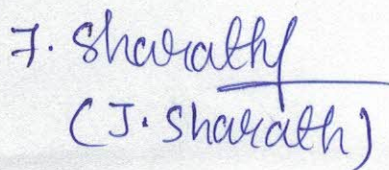 J. Sharath
(J. Sharath)